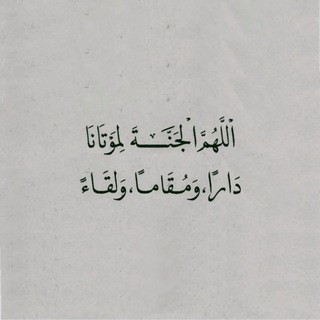 اللَّهُمَّ الْجَنَّـــةَ لِمَوْتَانَا
دَارًا، وَمُقَامًا، وَلِقَاءً